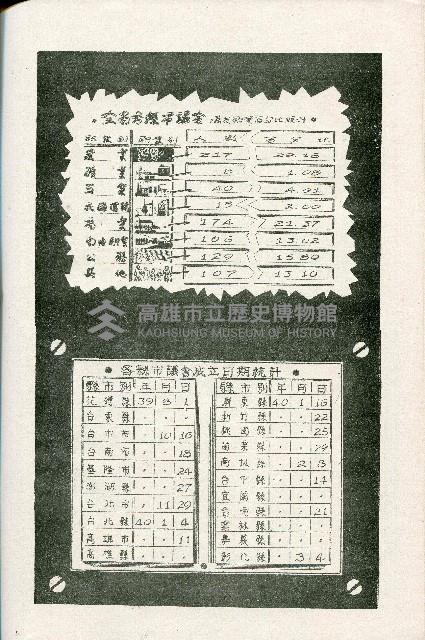 全省各縣市議會議員職業百分比統計
職業別 職業別 人數 百分比
農業 217
礦業
工業 40 4.91
交通運輸
商業 174 21.37
自由職業 106 13.02
公務 129
其他 107 13.10
高雄市立歷史博物館
KAOHSIUNG MUSEUM OF HISTORY
各縣市議會成立日期統計
縣市別 年 月 日
花蓮縣 39 8 1
台東縣 . . .
台中市 . 10 16
台南市 . . 18
基隆市 . . 24
澎湖縣 . . 27
台北市 . 11 29
台北縣 40 1 4
高雄市 . . 11
高雄縣 . . .
縣市別 年 月 日
屏東縣 40 1 16
新竹縣 . . 22
桃園縣 . . 25
苗栗縣 . . 29
南投縣 . 2 3
台中縣 . . 14
宜蘭縣 . . .
台南縣 . . 21
雲林縣 . . .
嘉義縣 . . .
彰化縣 . 3 4